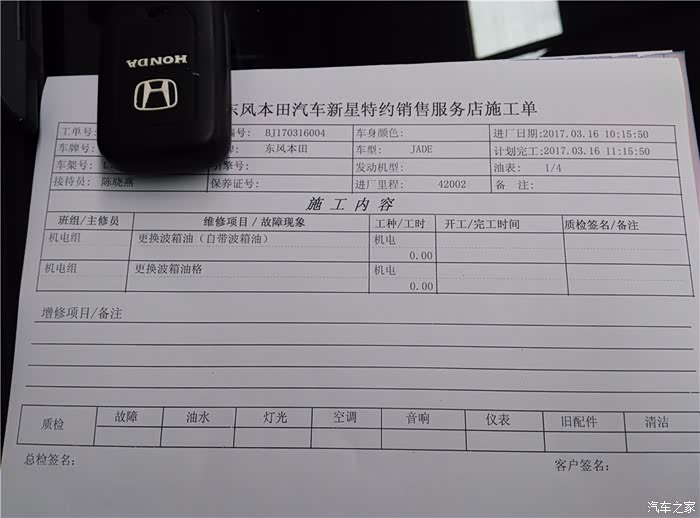 HONDA
东风本田汽车新星特约销售服务店施工单
工单号: 编号: BJ170316004 车身颜色: 进厂日期:2017.03.16 10:15:50
车牌号: 东风本田 车型: JADE 计划完工:2017.03.16 11:15:50
车架号: L 引擎号: 发动机型: 油表: 1/4
接待员: 陈晓燕 保养证号: 进厂里程: 42002 备 注:
施工内容
班组/主修员 维修项目/故障现象 工种/工时 开工/完工时间 质检签名/备注
机电组 更换波箱油(自带波箱油) 机电
0.00
机电组 更换波箱油格 机电
0.00
增修项目/备注
质检 故障 油水 灯光 空调 音响 仪表 旧配件 清洁
总检签名: 客户签名:
汽车之家